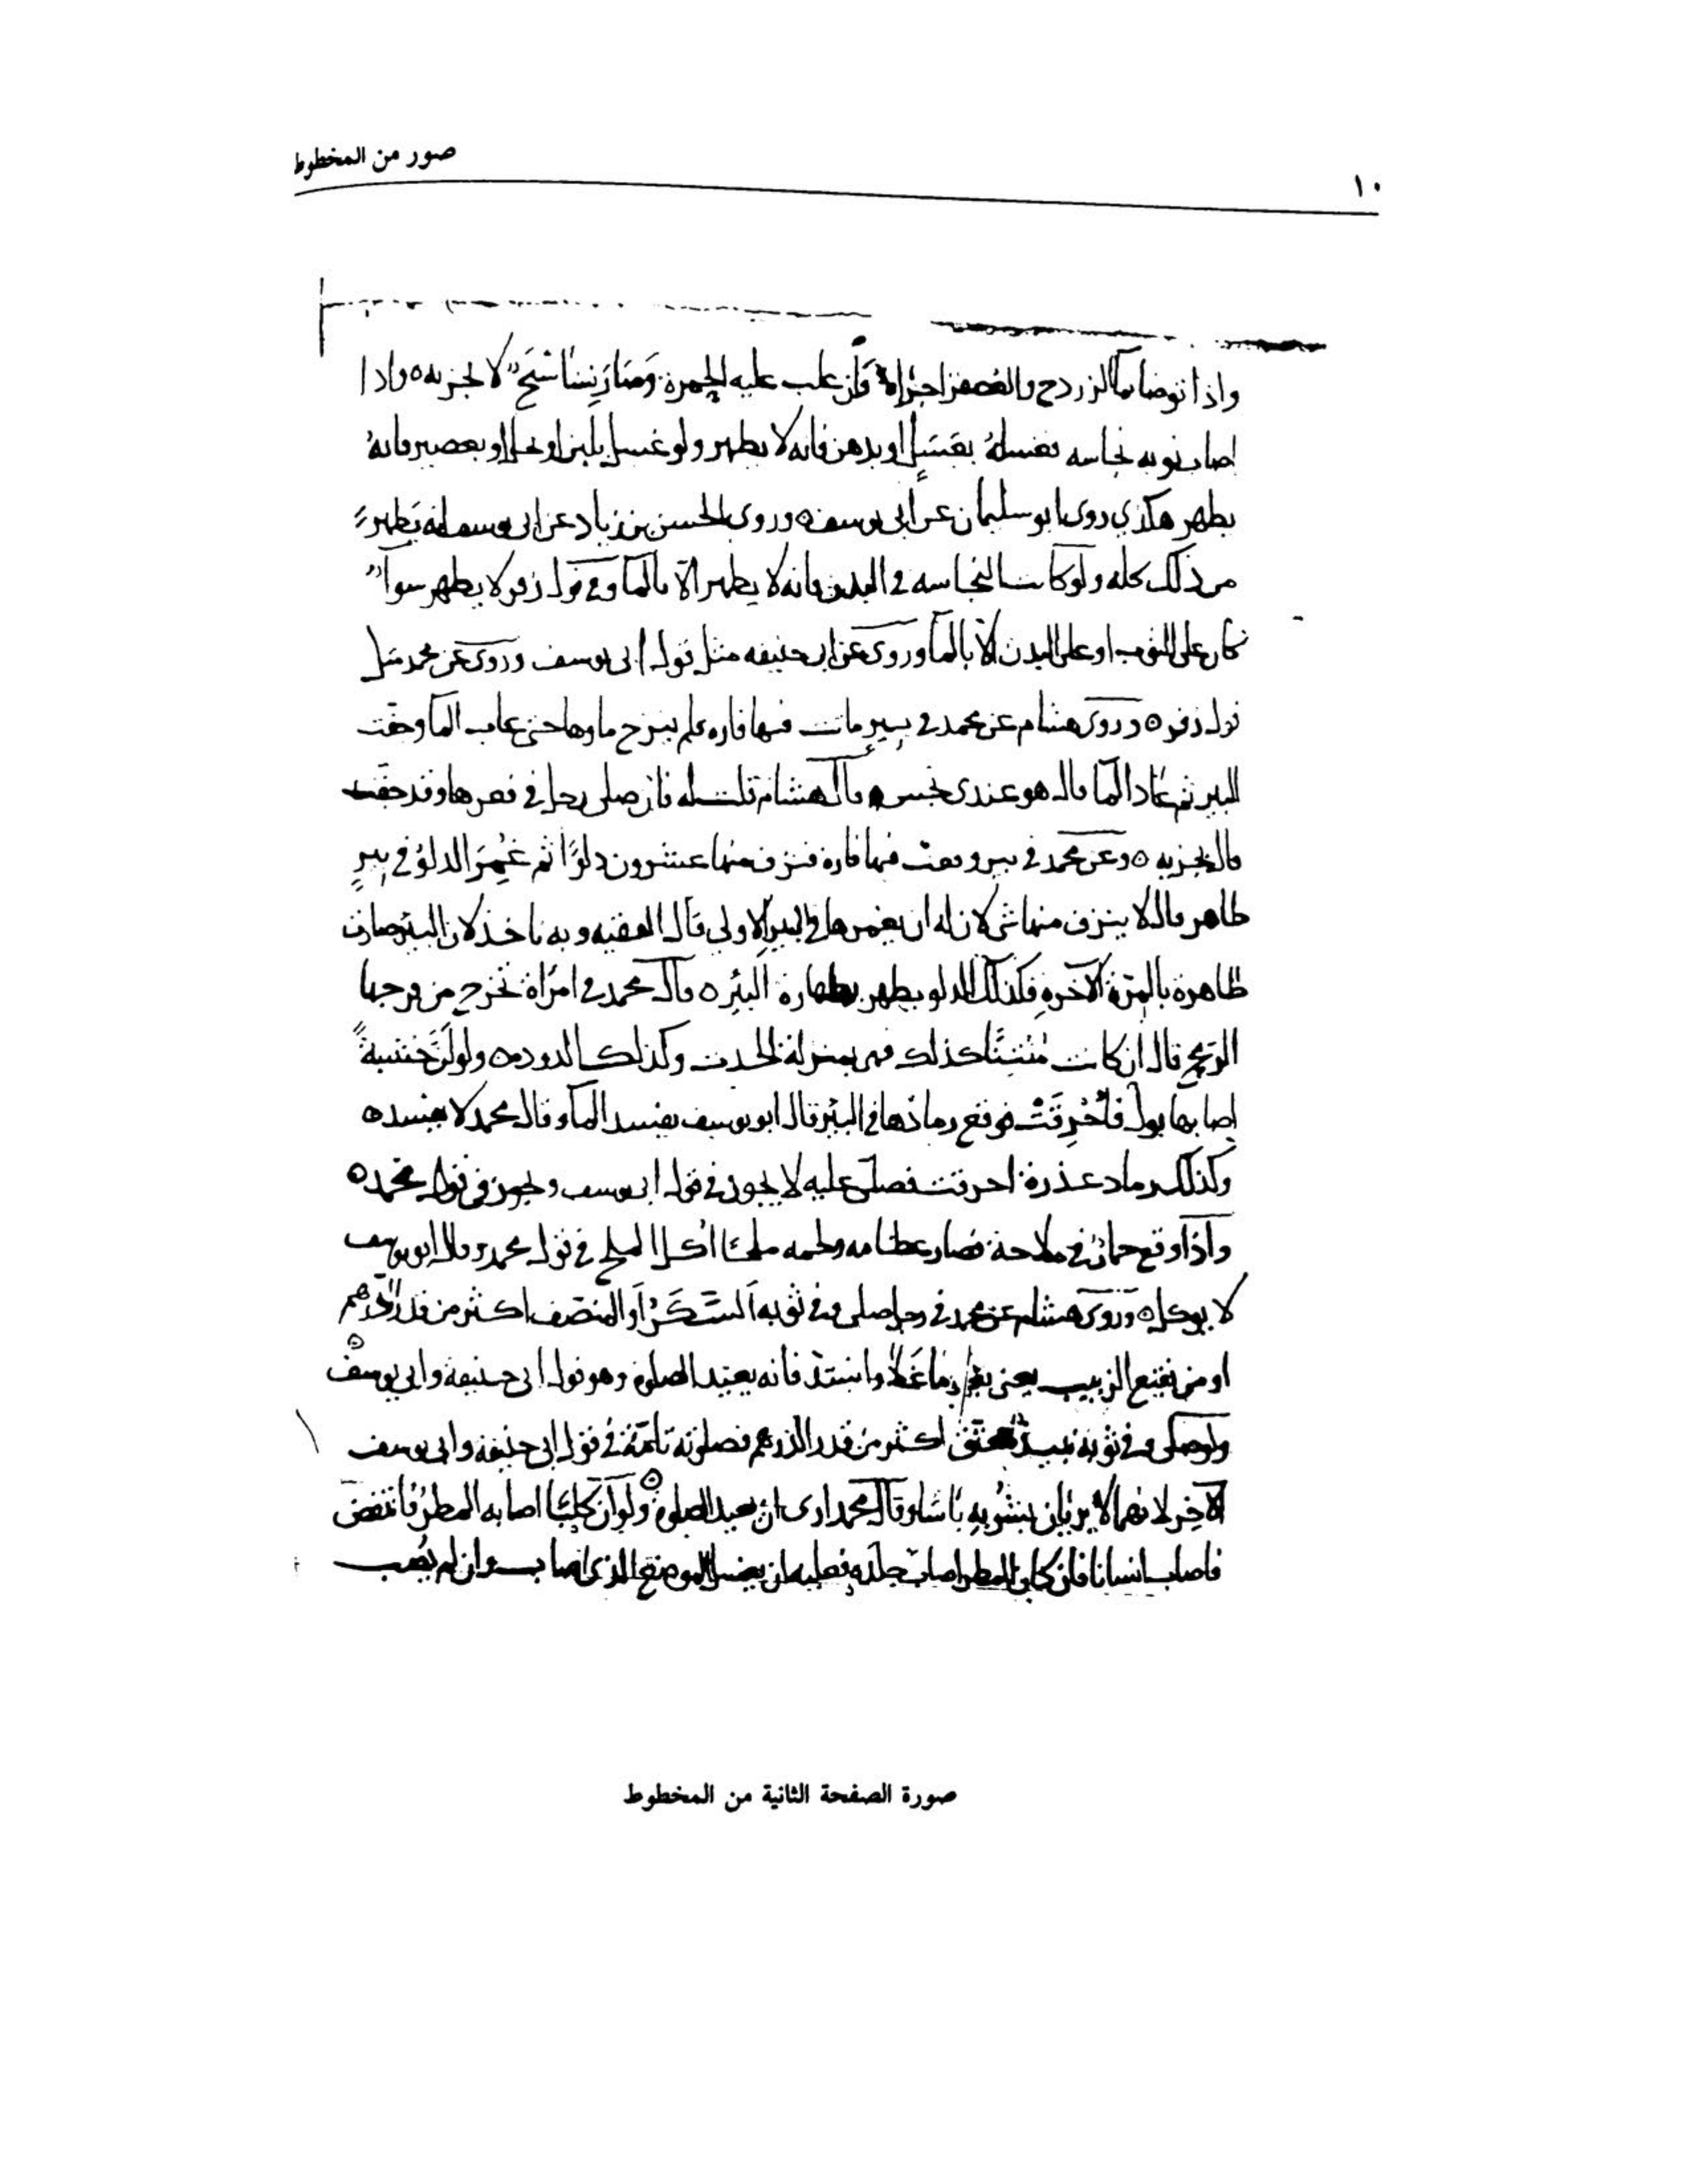 صور من المخطوط
١٠
واذا توضا بما الزردج والعصفر اجزاه فان غلب عليه الحمرة وصار نشاستج لا يجزيه ٥ واذا
اصاب ثوبه نجاسه فغسله بعسل او بدهن فانه لا يطهر ولو غسل بلبن او بخل او بعصير فانه
يطهر هكذي روى ابو سليمان عن ابى يوسف ٥ وروى الحسن بن زياد عن ابى يوسف انه يطهر
من ذلك كله ولو كانت النجاسه في البدن فانه لا يطهر الا بالما وفي قول زفر لا يطهر سوآ
كان على الثوب او على البدن الا بالمآ وروى عن ابى حنيفه مثل قول ابى يوسف وروى عن محمد مثل
قول زفر ٥ وروى هشام عن محمد في بير ماتت فيها فاره فلم ينزح ماوها حتى غاب المآ وجفت
البير ثم عاد المآ قال هو عندى نجس ٥ قال هشام قلت له فان صلى رجل في قعرها وقد جفت
قال يجزيه ٥ وعن محمد في بير وقعت فيها فارة فنزف منها عشرون دلوًا ثم غُمِرَ الدلو في بيرٍ
طاهر قال لا ينزف منها شى لان له ان يغمرها في البير الاولى قال الفقيه وبه ناخذ لان البئر صارت
طاهرة بالمرة الآخره فكذلك الدلو يطهر بطهارة البئر ٥ وقال محمد في امرأة تخرج من فرجها
الريح قال ان كانت مُنْتِنًا كذلك فهى بمنزلة الحدث وكذلك الدوده ٥ ولو ان خشبةً
اصابها بول فأُحْرِقَتْ فوقع رمادها في البئر قال ابو يوسف يفسد المآ وقال محمد لا يفسده
وكذلك رماد عذرة احرقت فصلى عليه لا يجوز في قول ابى يوسف ويجوز في قول محمد ٥
واذا وقع حمار في ملاحة فصار عظامه ولحمه ملحًا اكل الملح في قول محمد وقال ابو يوسف
لا يوكل ٥ وروى هشام عن محمد في رجل صلى وفي ثوبه السَّكَرُ او المنصف اكثر من قدر الدرهم
او من نقيع الزبيب يعنى بعد ما غلا وانبتذ فانه يعيد الصلوة وهو قول ابى حنيفة وابى يوسف ٥
ولو صلى وفي ثوبه نبيذ معتق اكثر من قدر الدرهم فصلوته تامة في قول ابى حنيفة وابى يوسف
الآخِر لانهما لا يريان بشربه باسًا وقال محمد ارى ان يعيد الصلوة ٥ ولو ان كلبًا اصابه المطر فانتفض
فاصاب انسانا فان كان المطر اصاب جلده فعليه ان يغسل الموضع الذى اصاب وان لم يُصب
صورة الصفحة الثانية من المخطوط